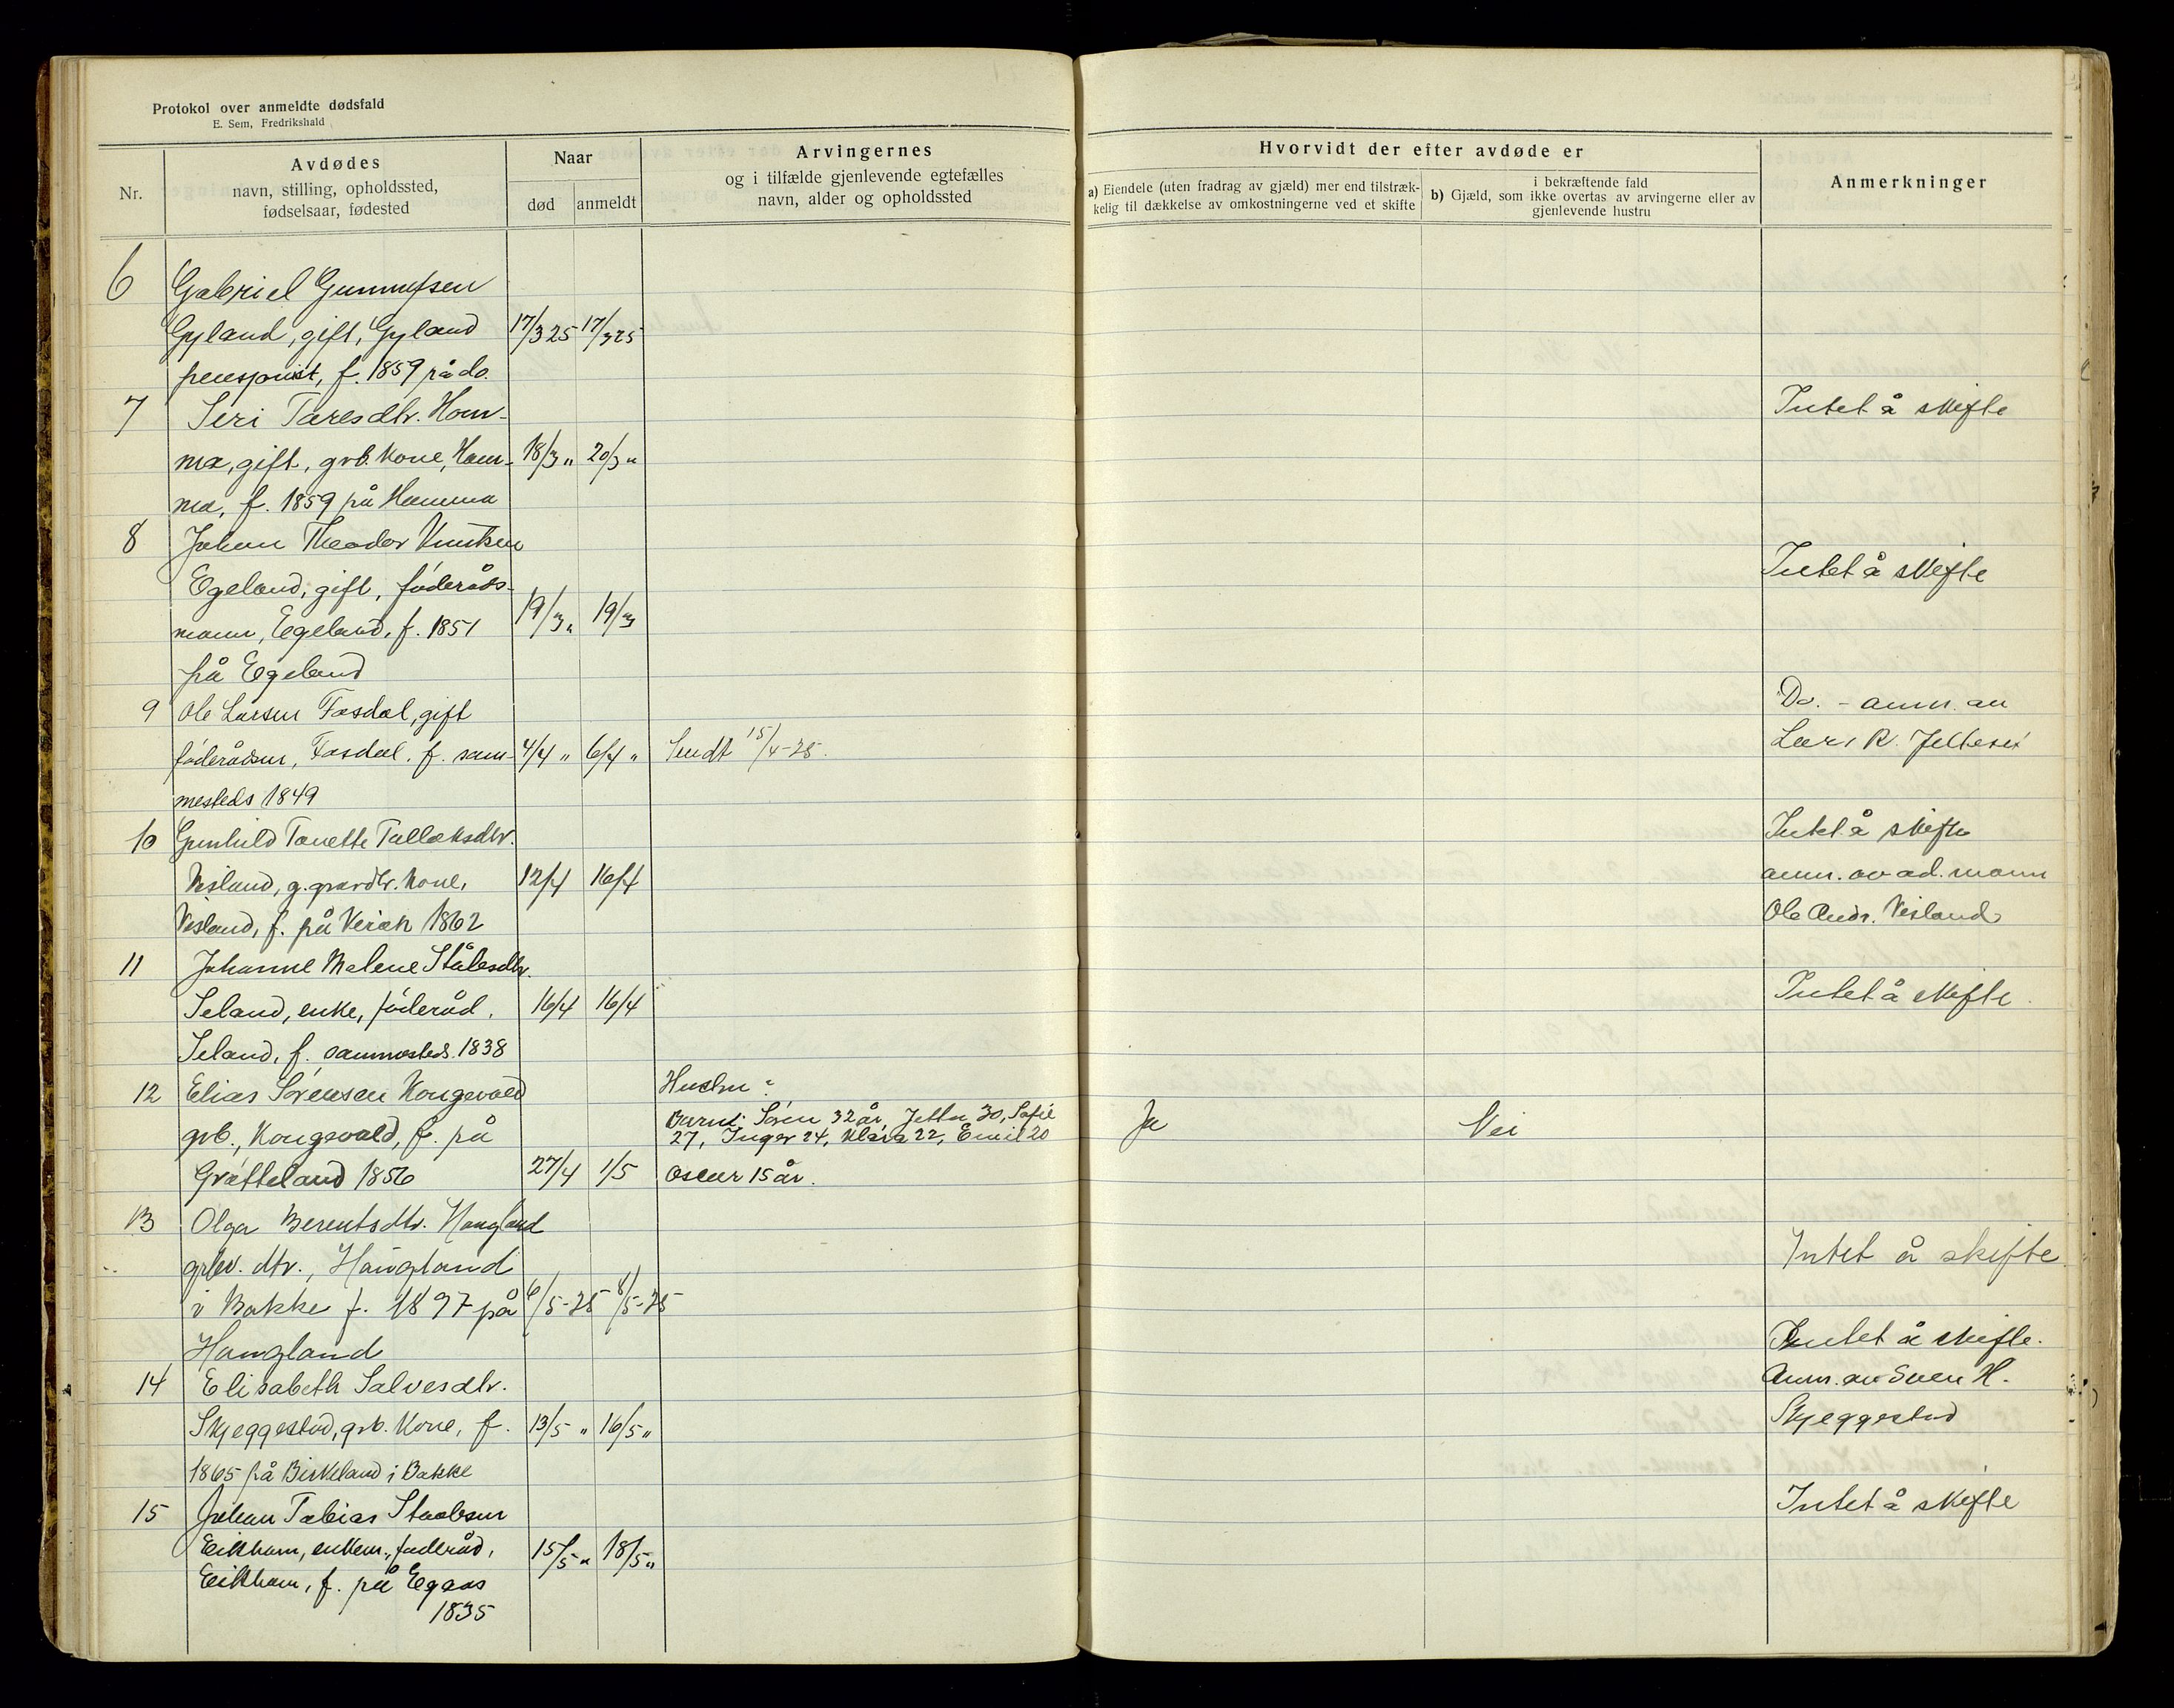 Protokol over anmeldte dødsfald
E. Sem, Fredrikshald
Nr.
Avdødes
navn, stilling, opholdssted,
fødselsaar, fødested
Naar
død
anmeldt
Arvingernes
og i tilfælde gjenlevende egtefælles
navn, alder og opholdssted
Hvorvidt der efter avdøde er
a) Eiendele (uten fradrag av gjæld) mer end tilstræk-
kelig til dækkelse av omkostningerne ved et skifte
i bekræftende fald
b) Gjæld, som ikke overtas av arvingerne eller av
gjenlevende hustru
Anmerkninger
6 Gabriel Gunnufsen
Gyland, gift, Gyland 17/3 25 17/3 25
f. 1859 på do.
7 Seri Taresdtr. Hom-
ma, gift, grb. kone, Hom- 18/3 " 20/3 "
ma, f. 1859 på Homma
Intet å skifte
8 Johan Theodor Knutsen
Egeland, gift, føderåds-
mann, Egeland, f. 1851 19/3 " 19/3
på Egeland
Intet å skifte
9 Ole Larsen Fosdal, gift
føderådsm, Fosdal, f. sam- 4/4 " 6/4 " Sendt 15/4-25.
mesteds 1849
Do. - anm. av
Lars R.
10 Gunhild Tonette Tallaksdtr.
Nisland, g. grdr. kone, 12/4 16/4
Nisland, f. på Veisen 1862
Intet å skifte
anm. av ad. mann
Ole Andr. Nisland
11 Johanne Malene Ståbesdtr.
Seland, enke, føderåd, 16/4 16/4
Seland, f. sammesteds 1838
Intet å skifte.
12 Elias Sørensen Kongevold
grb., Kongevold, f. på
Grøtteland 1856 27/4 1/5
Hustru:
Barn: Søren 32 år, Jetta 30, Sofie
27, Inger 24, Klara 22, Emil 20
Oscar 15 år.
Ja
Nei
13 Olga Berentsdtr. Haugland
grbr. dtr., Haugland
i Bakke f. 1897 på 6/5-25 8/5-25
Haugland
Intet å skifte.
14 Elisabeth Salvesdtr.
Skjeggestad, grb. kone, f. 13/5 " 16/5 "
1865 på Birkeland i Bakke
Intet å skifte.
Anm. av Sven H.
Skjeggestad
15 Johan Tobias Staalesen
Eikhom, enkem., føderåd, 15/5 " 18/5 "
Eikhom, f. på Egaas
1835
Intet å skifte